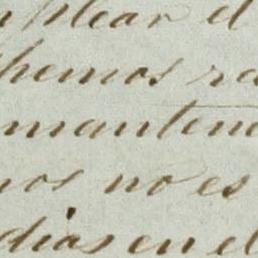 plear el
hemos ra
manten
nos no es
dias en el